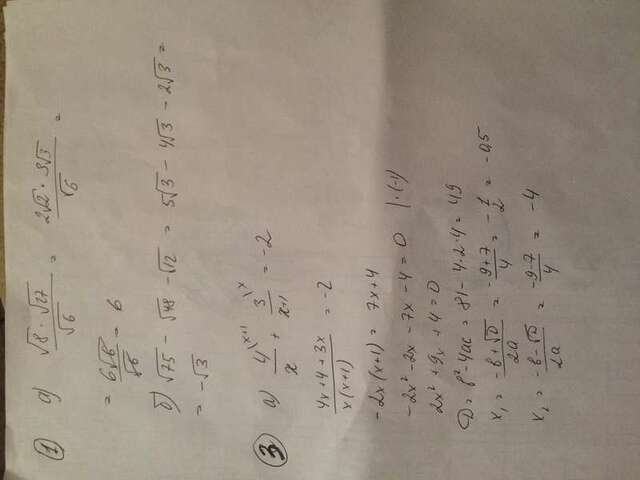 1 а) (√8 · √27)/√6 = (2√2 · 3√3)/√6 =
= 6√6/√6 = 6
б) √75 - √48 - √12 = 5√3 - 4√3 - 2√3 =
= -√3
3 а) 4\x+1/x + 3\x/(x+1) = -2
(4x+4+3x)/(x(x+1)) = -2
-2x(x+1) = 7x+4
-2x² - 2x - 7x - 4 = 0 | · (-1)
2x² + 9x + 4 = 0
D = b² - 4ac = 81 - 4·2·4 = 49
x₁ = (-b+√D)/2a = (-9+7)/4 = -1/2 = -0,5
x₂ = (-b-√D)/2a = (-9-7)/4 = -4